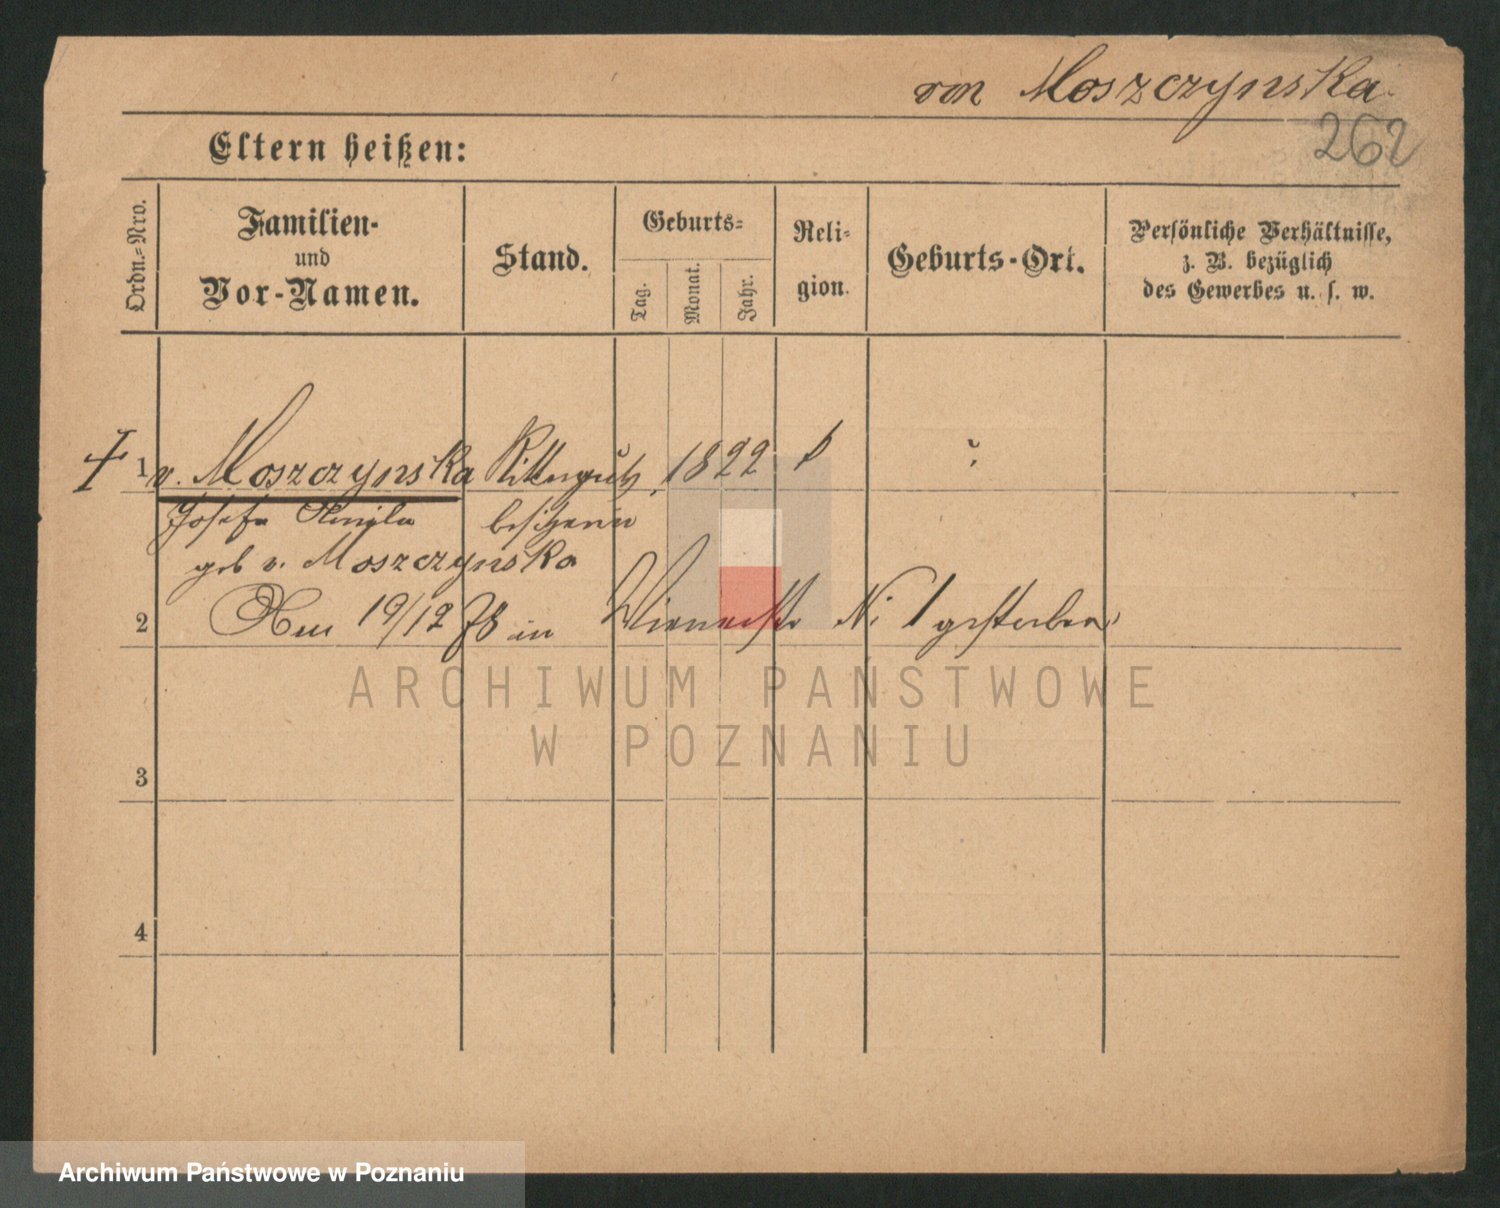 von Moszczynska
262
Eltern heißen:
Ordn.-Nro.
Familien-
und
Vor-Namen.
Stand.
Geburts-
Tag.
Monat.
Jahr.
Reli-
gion.
Geburts-Ort.
Persönliche Verhältnisse,
z. B. bezüglich
des Gewerbes u. s. w.
1 v. Moszczynska Ritterguts 1822 ?
Josefa besitzerin
geb v. Moszczynska
2 19/12 78 in No 1 gestorben
ARCHIWUM PAŃSTWOWE
W POZNANIU
3
4
Archiwum Państwowe w Poznaniu